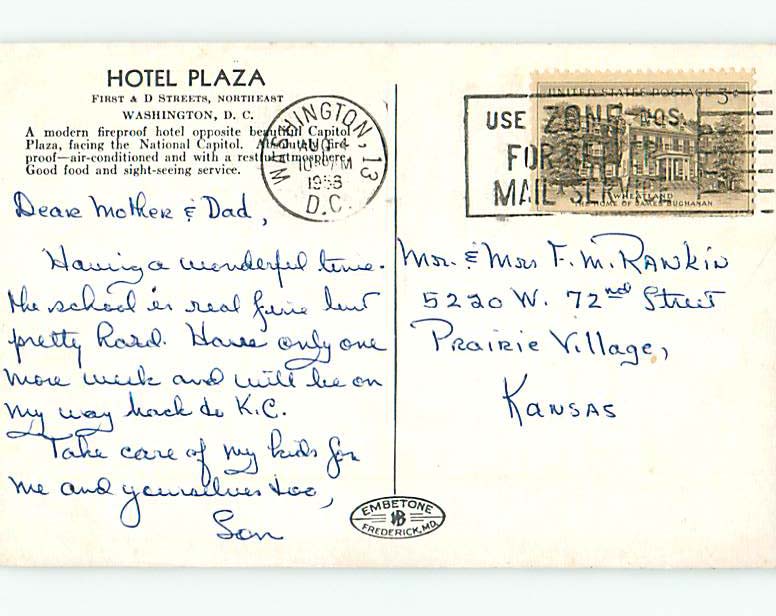 HOTEL PLAZA
FIRST & D STREETS, NORTHEAST
WASHINGTON, D. C.
A modern fireproof hotel opposite beautiful Capitol
Plaza, facing the National Capitol. Absolutely fire-
proof—air-conditioned and with a restful atmosphere.
Good food and sight-seeing service.
WASHINGTON, 13
AUG
1956
D.C.
USE ZONE NOS.
FOR BETTER
MAIL SERVICE
UNITED STATES POSTAGE 3¢
WHEATLAND
THE HOME OF JAMES BUCHANAN
Dear Mother & Dad,
Having a wonderful time.
the school is real fine but
pretty hard. Have only one
more week and will be on
my way back to K.C.
Take care of my kids for
me and yourselves too,
Son
Mr. & Mrs F. M. RANKIN
5220 W. 72nd Street
PRAIRIE Village,
KANSAS
EMBETONE
FREDERICK, MD.